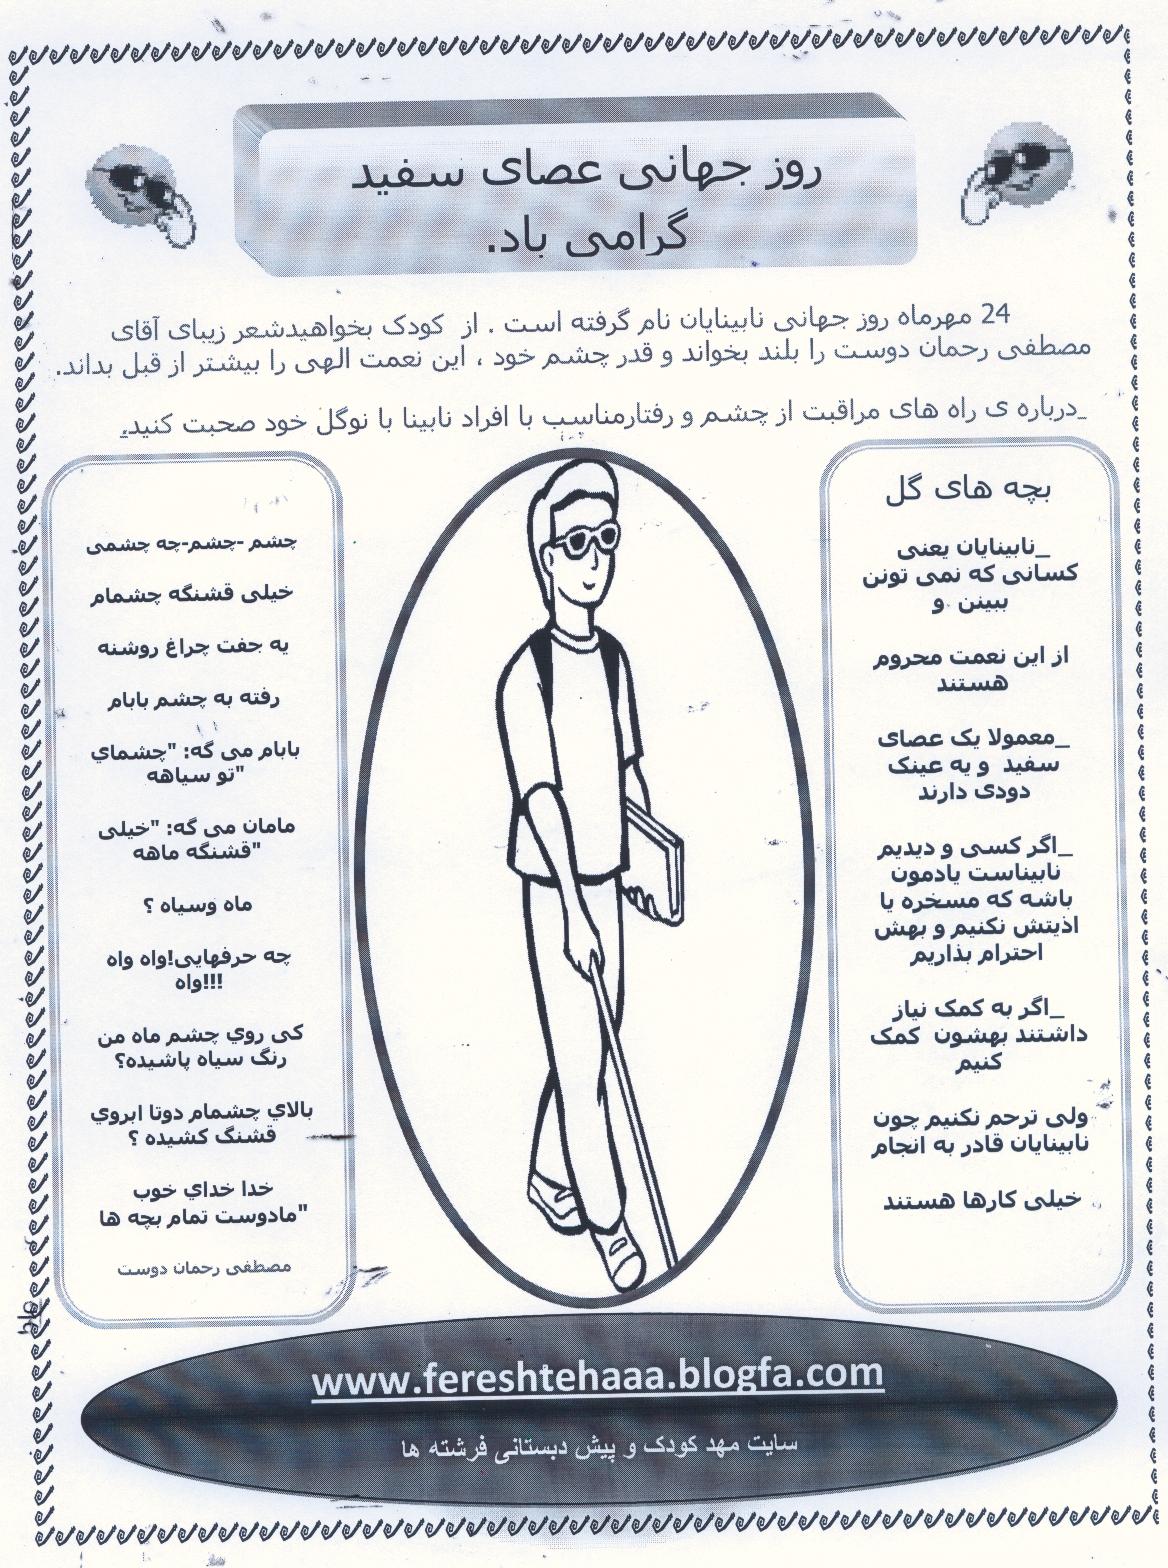 روز جهانی عصای سفید
گرامی باد.
24 مهرماه روز جهانی نابینایان نام گرفته است . از  کودک بخواهیدشعر زیبای آقای
مصطفی رحمان دوست را بلند بخواند و قدر چشم خود ، این نعمت الهی را بیشتر از قبل بداند.
_درباره ی راه های مراقبت از چشم و رفتارمناسب با افراد نابینا با نوگل خود صحبت کنید.
بچه های گل
_نابینایان یعنی
کسانی که نمی تونن
ببینن  و
از این نعمت محروم
هستند
_معمولا یک عصای
سفید  و یه عینک
دودی دارند
_اگر کسی و دیدیم
نابیناست یادمون
باشه که مسخره یا
اذیتش نکنیم و بهش
احترام بذاریم
_اگر به کمک نیاز
داشتند بهشون  کمک
کنیم
ولی ترحم نکنیم چون
نابینایان قادر به انجام
خیلی کارها هستند
چشم -چشم-چه چشمی
خیلی قشنگه چشمام
یه جفت چراغ روشنه
رفته به چشم بابام
بابام می گه: "چشماي
تو سیاهه"
مامان می گه: "خیلی
قشنگه ماهه"
ماه وسیاه ؟
چه حرفهایی!واه واه
واه!!!
کی روي چشم ماه من
رنگ سیاه پاشیده؟
بالاي چشمام دوتا ابروي
قشنگ کشیده ؟
خدا خداي خوب
مادوست تمام بچه ها"
مصطفی رحمان دوست
www.fereshtehaaa.blogfa.com
سایت مهد کودک و پیش دبستانی فرشته ها